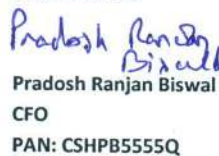 Pradosh Ranjan
Biswal
Pradosh Ranjan Biswal
CFO
PAN: CSHPB5555Q